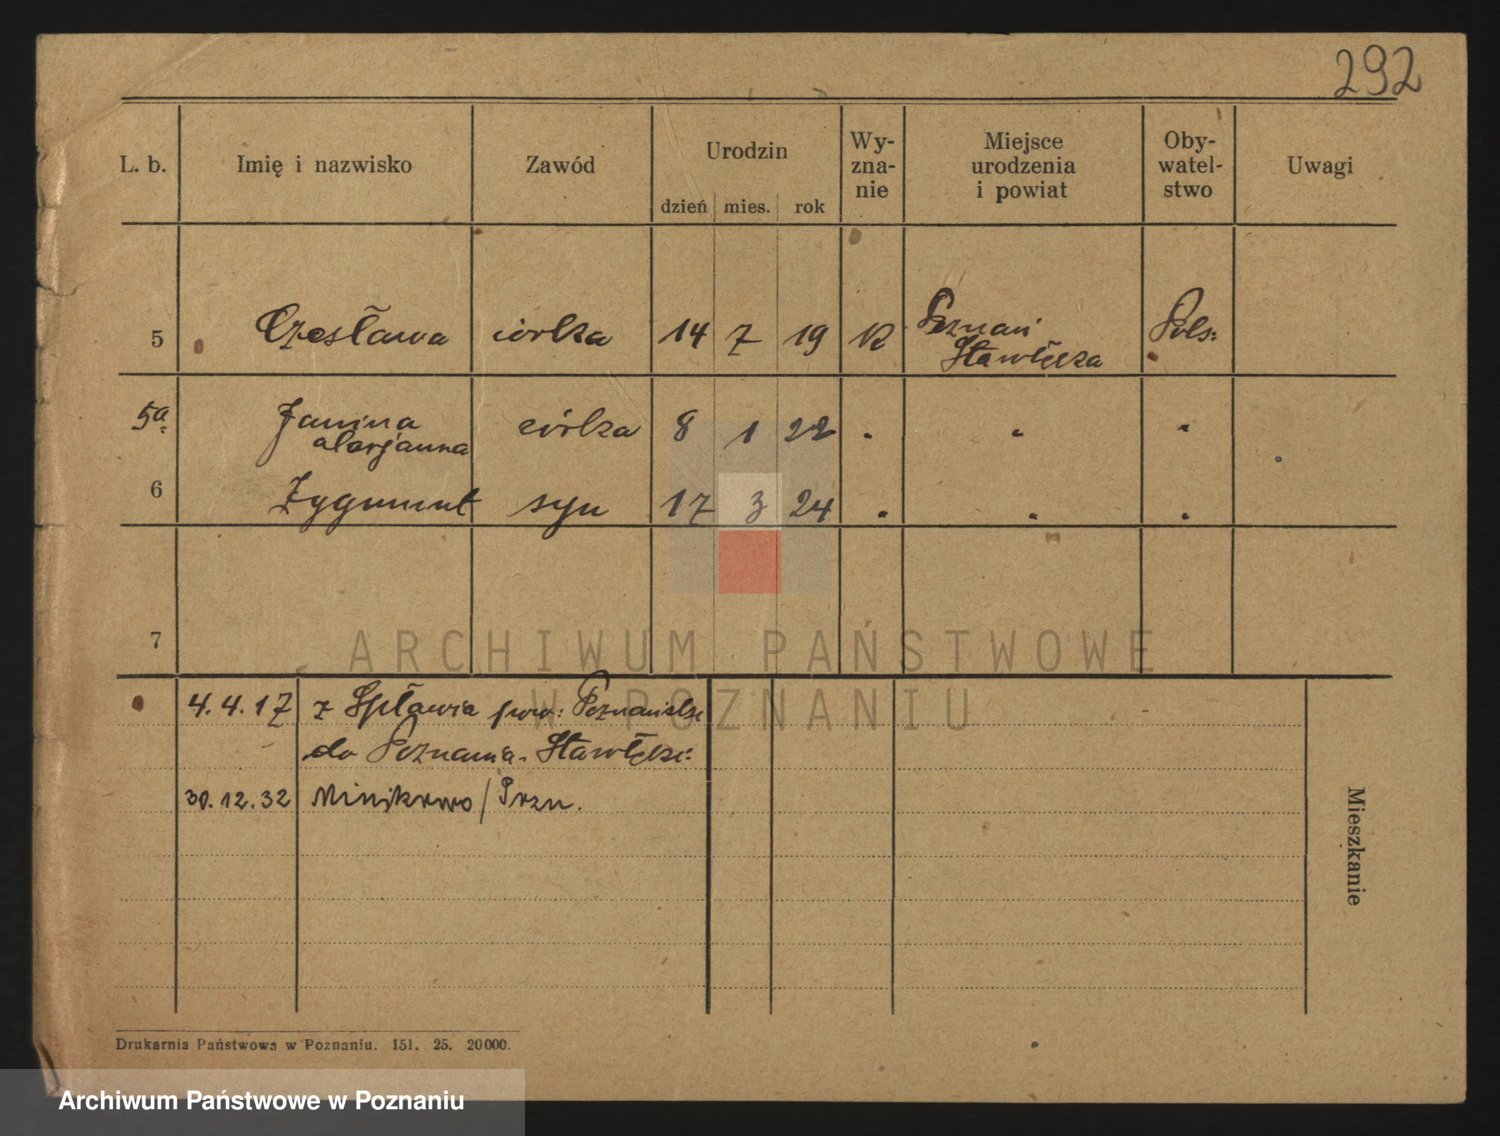 292
L. b. Imię i nazwisko Zawód Urodzin Wy-zna-nie Miejsce urodzenia i powiat Oby-watel-stwo Uwagi
dzień mies. rok
5 Czesława córka 14 7 19 K Poznań Pols:
Stawłęcka
5a Janina córka 8 1 22 " " "
Marjanna
6 Zygmunt syn 17 3 24 " " "
7
ARCHIWUM PAŃSTWOWE
W POZNANIU
4.4.17 z Spławia pow:
do Poznania
30.12.32 Minikowo / Pozn.
Mieszkanie
Drukarnia Państwowa w Poznaniu. 151. 25. 20000.
Archiwum Państwowe w Poznaniu